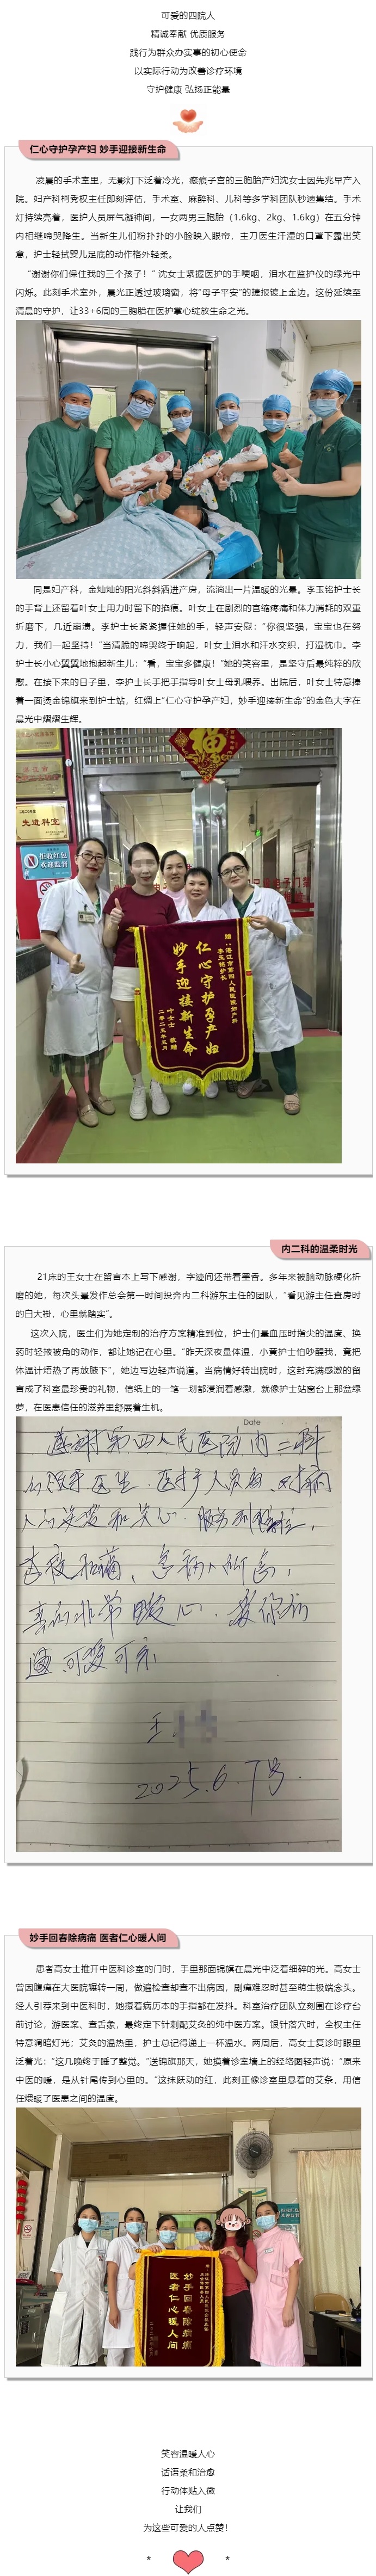 可爱的四院人
精诚奉献 优质服务
践行为群众办实事的初心使命
以实际行动为改善诊疗环境
守护健康 弘扬正能量
仁心守护孕产妇 妙手迎接新生命
凌晨的手术室里，无影灯下泛着冷光，瘢痕子宫的三胞胎产妇沈女士因先兆早产入
院。妇产科柯秀权主任即刻评估，手术室、麻醉科、儿科等多学科团队秒速集结。手术
灯持续亮着，医护人员屏气凝神间，一女两男三胞胎（1.6kg、2kg、1.6kg）在五分钟
内相继啼哭降生。当新生儿们粉扑扑的小脸映入眼帘，主刀医生汗湿的口罩下露出笑
意，护士轻拭婴儿足底的动作格外轻柔。
“谢谢你们保住我的三个孩子！” 沈女士紧握医护的手哽咽，泪水在监护仪的绿光中
闪烁。此刻手术室外，晨光正透过玻璃窗，将“母子平安”的捷报镀上金边。这份延续至
清晨的守护，让33+6周的三胞胎在医护掌心绽放生命之光。
同是妇产科，金灿灿的阳光斜斜洒进产房，流淌出一片温暖的光晕。李玉铭护士长
的手背上还留着叶女士用力时留下的掐痕。叶女士在剧烈的宫缩疼痛和体力消耗的双重
折磨下，几近崩溃。李护士长紧紧握住她的手，轻声安慰：“你很坚强，宝宝也在努
力，我们一起坚持！”当清脆的啼哭终于响起，叶女士泪水和汗水交织，打湿枕巾。李
护士长小心翼翼地抱起新生儿：“看，宝宝多健康！”她的笑容里，是坚守后最纯粹的欣
慰。在接下来的日子里，李护士长手把手指导叶女士母乳喂养。出院后，叶女士特意捧
着一面烫金锦旗来到护士站，红绸上“仁心守护孕产妇，妙手迎接新生命”的金色大字在
晨光中熠熠生辉。
福
先进科室
拒收红包
欢迎监督
赠：湛江市第四人民医院妇产科
李玉铭护士长
仁心守护孕产妇
妙手迎接新生命
叶女士 敬赠
二零二五年五月
内二科的温柔时光
21床的王女士在留言本上写下感谢，字迹间还带着墨香。多年来被脑动脉硬化折
磨的她，每次头晕发作总会第一时间投奔内二科游东主任的团队，“看见游主任查房时
的白大褂，心里就踏实”。
这次入院，医生们为她定制的治疗方案精准到位，护士们量血压时指尖的温度、换
药时轻掖被角的动作，都让她记在心里。“昨天深夜量体温，小黄护士怕吵醒我，竟把
体温计焐热了再放腋下”，她边写边轻声说道。当病情好转出院时，这封充满感激的留
言成了科室最珍贵的礼物，信纸上的一笔一划都浸润着感激，就像护士站窗台上那盆绿
萝，在医患信任的滋养里舒展着生机。
Date
感谢第四人民医院内二科
王
2025.6.7号.
妙手回春除病痛 医者仁心暖人间
患者高女士推开中医科诊室的门时，手里那面锦旗在晨光中泛着细碎的光。高女士
曾因腹痛在大医院辗转一周，做遍检查却查不出病因，剧痛难忍时甚至萌生极端念头。
经人引荐来到中医科时，她攥着病历本的手指都在发抖。科室治疗团队立刻围在诊疗台
前讨论，游医案、查舌象，最终定下针刺配艾灸的纯中医方案。银针落穴时，全权主任
特意调暗灯光；艾灸的温热里，护士总记得递上一杯温水。两周后，高女士复诊时眼里
泛着光：“这几晚终于睡了整觉。”送锦旗那天，她摸着诊室墙上的经络图轻声说：“原来
中医的暖，是从针尾传到心里的。”这抹跃动的红，此刻正像诊室里悬着的艾条，用信
任煨暖了医患之间的温度。
妙手回春除病痛
医者仁心暖人间
笑容温暖人心
话语柔和治愈
行动体贴入微
让我们
为这些可爱的人点赞！